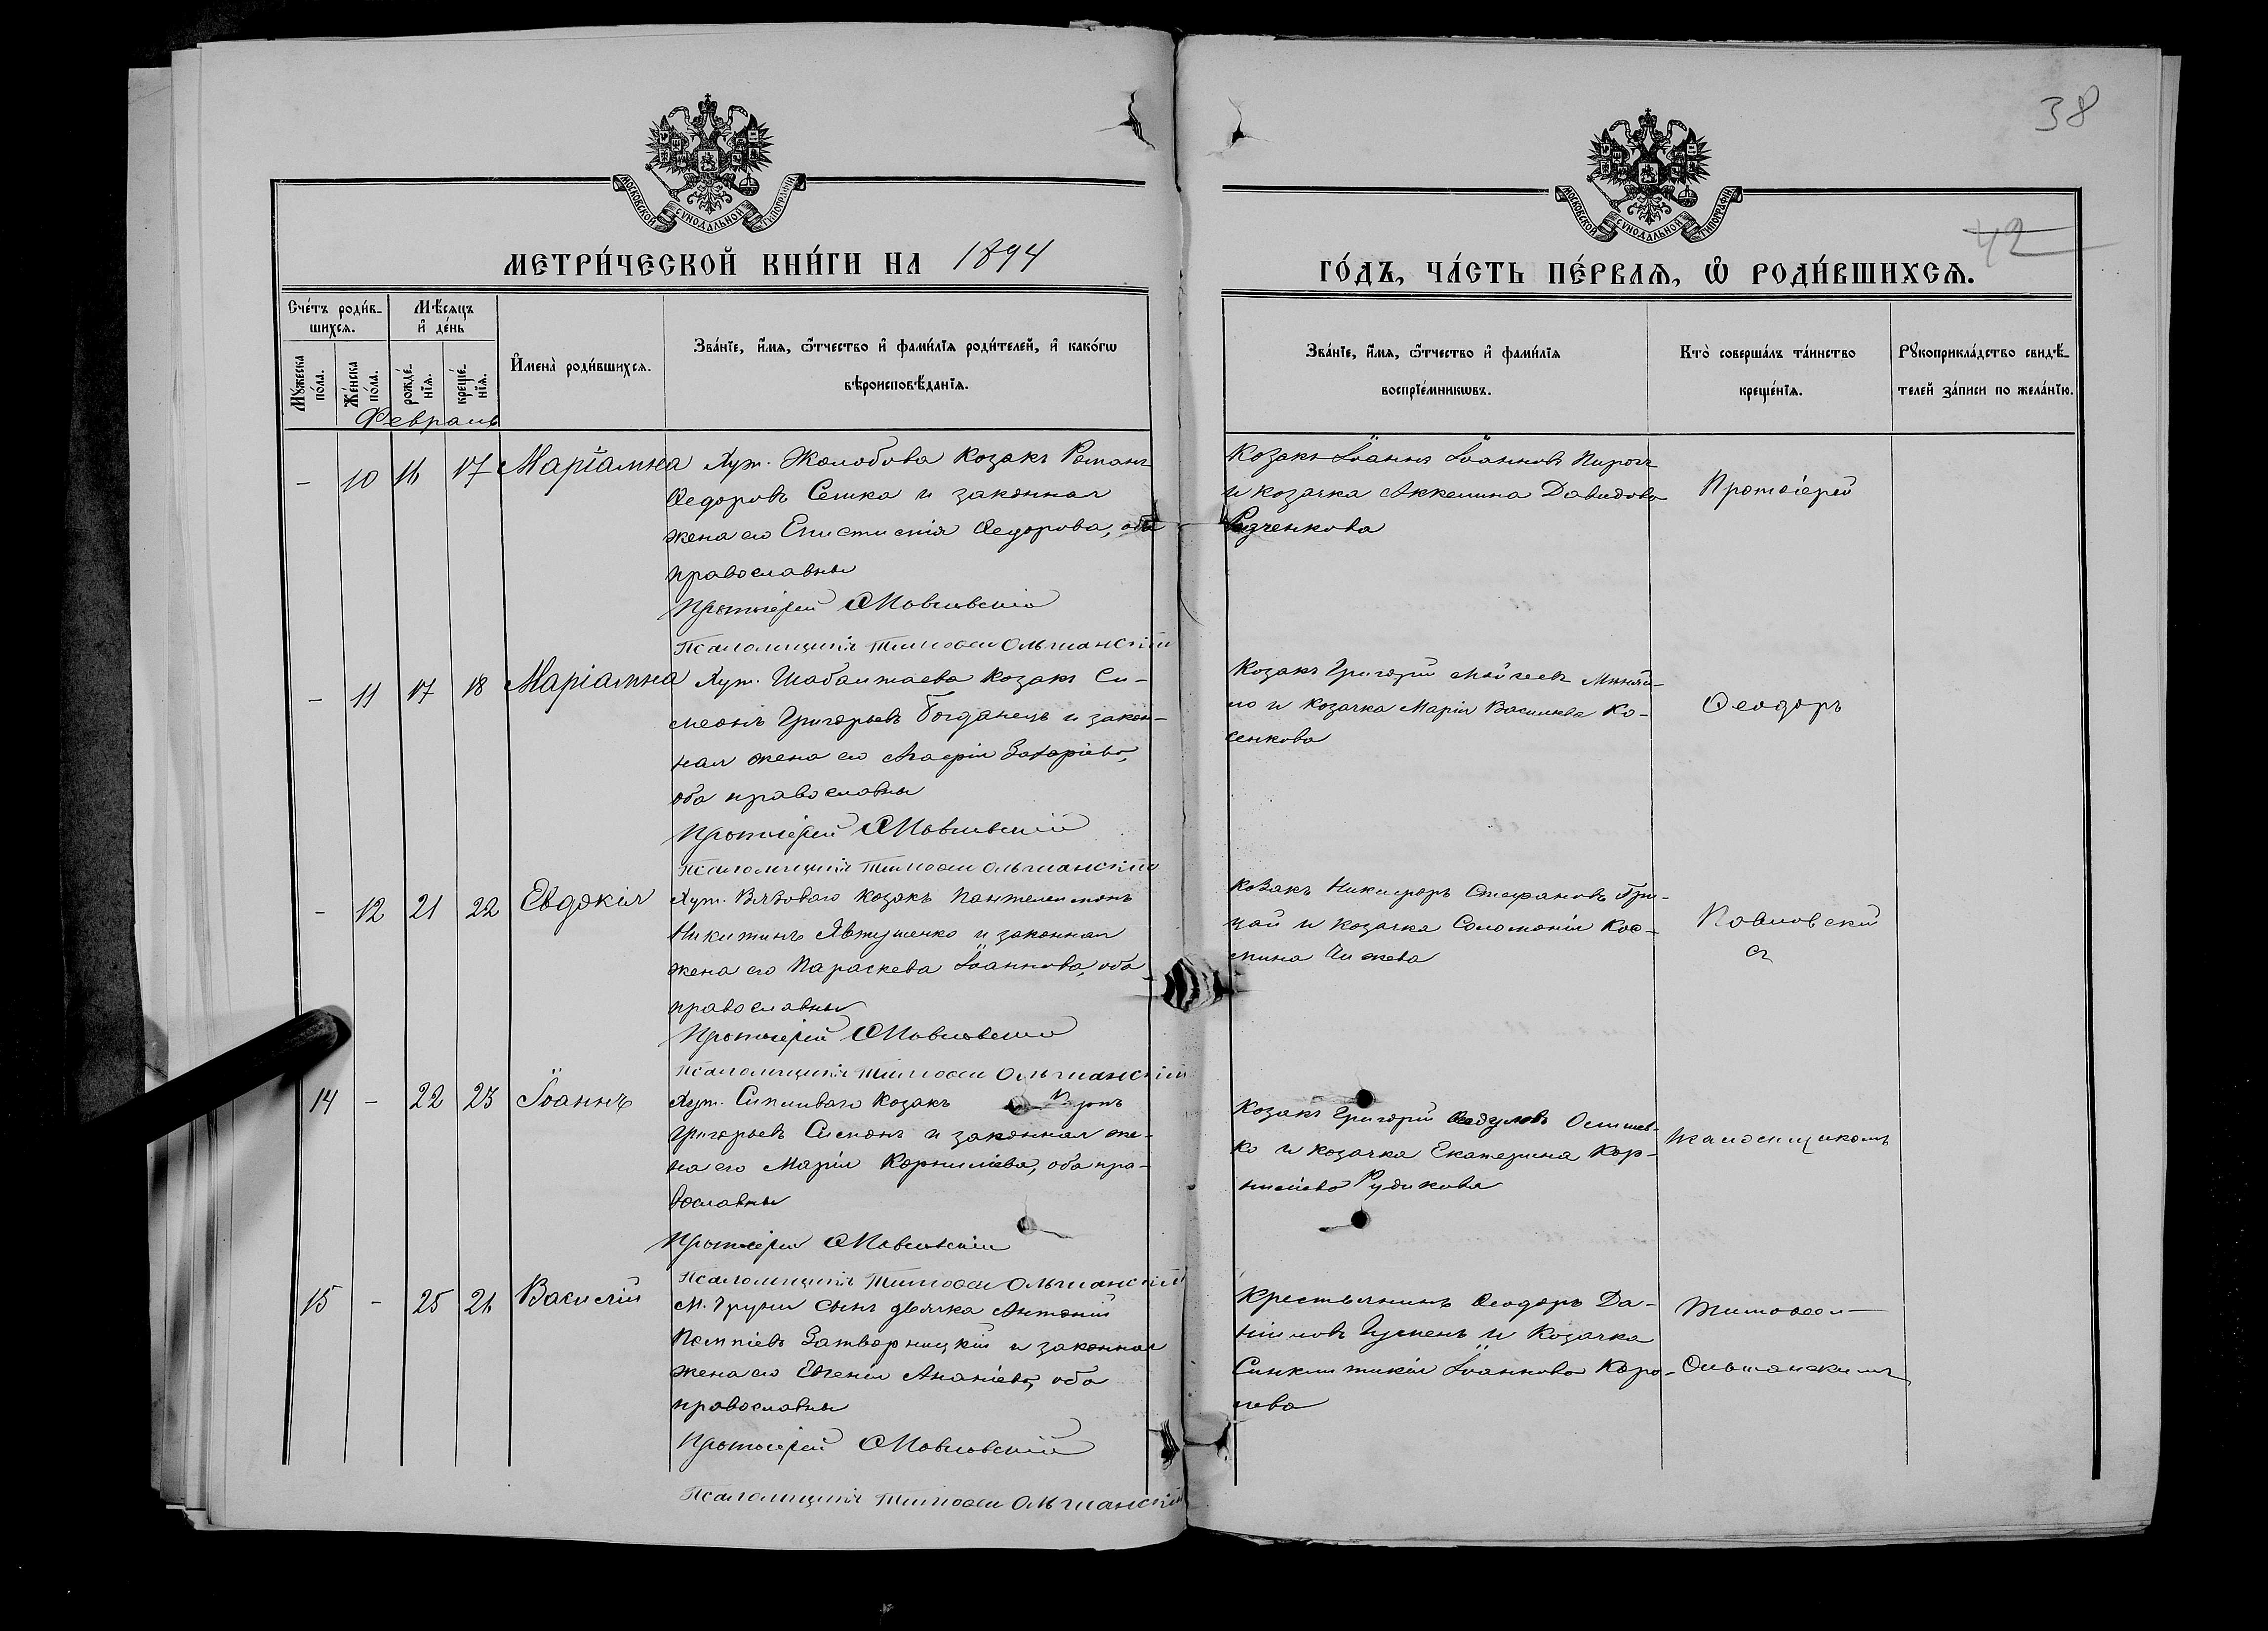 38
МОСКОВСКОЙ СѴНОДАЛЬНОЙ ТИПОГРАФІИ
МОСКОВСКОЙ СѴНОДАЛЬНОЙ ТИПОГРАФІИ
42
МЕТРИ́ЧЕСКОЙ КНИ́ГИ НА 1894
ГО́ДЪ, ЧА́СТЬ ПЕ́РВАѦ, Ѽ РОДИ́ВШИХСѦ.
Сче́тъ роди́в-
шихсѧ.
Мѣ́сѧцъ
и҆ де́нь
Мꙋ́жеска
по́ла.
Же́нска
по́ла.
рожде́-
нїѧ.
креще́-
нїѧ.
И҆мена̀ роди́вшихсѧ.
Зва́нїе, и҆́мѧ, ѻ҆́тчество и҆ фами́лїѧ роди́телей, и҆ како́гѡ
вѣроисповѣ́данїѧ.
Зва́нїе, и҆́мѧ, ѻ҆́тчество и҆ фами́лїѧ
воспрїе́мникѡвъ.
Кто̀ соверша́лъ та́инство
креще́нїѧ.
Рꙋкоприкла́дство свидѣ́-
телей за́писи по жела́нїю.
Февраль
- 10 16 17 Маріамна Хут. Жолобова Козакъ Романъ
Ѳедоровъ Сешка и законная
жена его Епистимія Ѳедорова, оба
православны
Протоіерей Ѳ Повловскій
Псаломщикъ Тимоѳеи Ольшанскій
Козакъ Іоаннъ Іоанновъ Пирогъ
и козачка Аккелина Давидова
Протоіерей
- 11 17 18 Маріамна Хут. Шабалтаева Козакъ Си-
меонъ Григорьевъ Богданецъ и закон-
ная жена его Марія Захаріева,
оба православны
Протоіерей Ѳ Повловскій
Псаломщикъ Тимоѳеи Ольшанскій
Козакъ Григорій Мойсеевъ
и козачка Марія Васильева Ко-
сенкова
Ѳеодоръ
- 12 21 22 Евдокія Хут. Вязоваго Козакъ Пантелеимонъ
Никитинъ Явтушенко и законная
жена его Параскева Іоаннова, оба
православны
Протоіерей Ѳ Повловскій
Псаломщикъ Тимоѳеи Ольшанскій
Козакъ Никифоръ Стефановъ Гри-
цай и козачка Соломонія Кос-
мина Чижева
Повловскій
съ
14 - 22 23 Іоаннъ Хут. Сипливаго Козакъ
Григорьевъ Сисконъ и законная же-
на его Марія Корниліева, оба пра-
вославны
Протоіерей Ѳ Повловскій
Псаломщикъ Тимоѳеи Ольшанскій
Козакъ Григорій
ко и козачка Екатерина Кор-
ниліева Рудикова
псаломщикомъ
15 - 25 26 Василій М. Груни сынъ дьячка Антоній
Помпіевъ Затворницкій и законная
жена его Евгенія Ананіева, оба
православны
Протоіерей Ѳ Повловскій
Псаломщикъ Тимоѳеи Ольшанскій
Крестьянинъ Ѳеодоръ Да-
ніиловъ и Козачка
Синклитикія Іоаннова Коро-
лева
Тимоѳеемъ
Ольшанскимъ